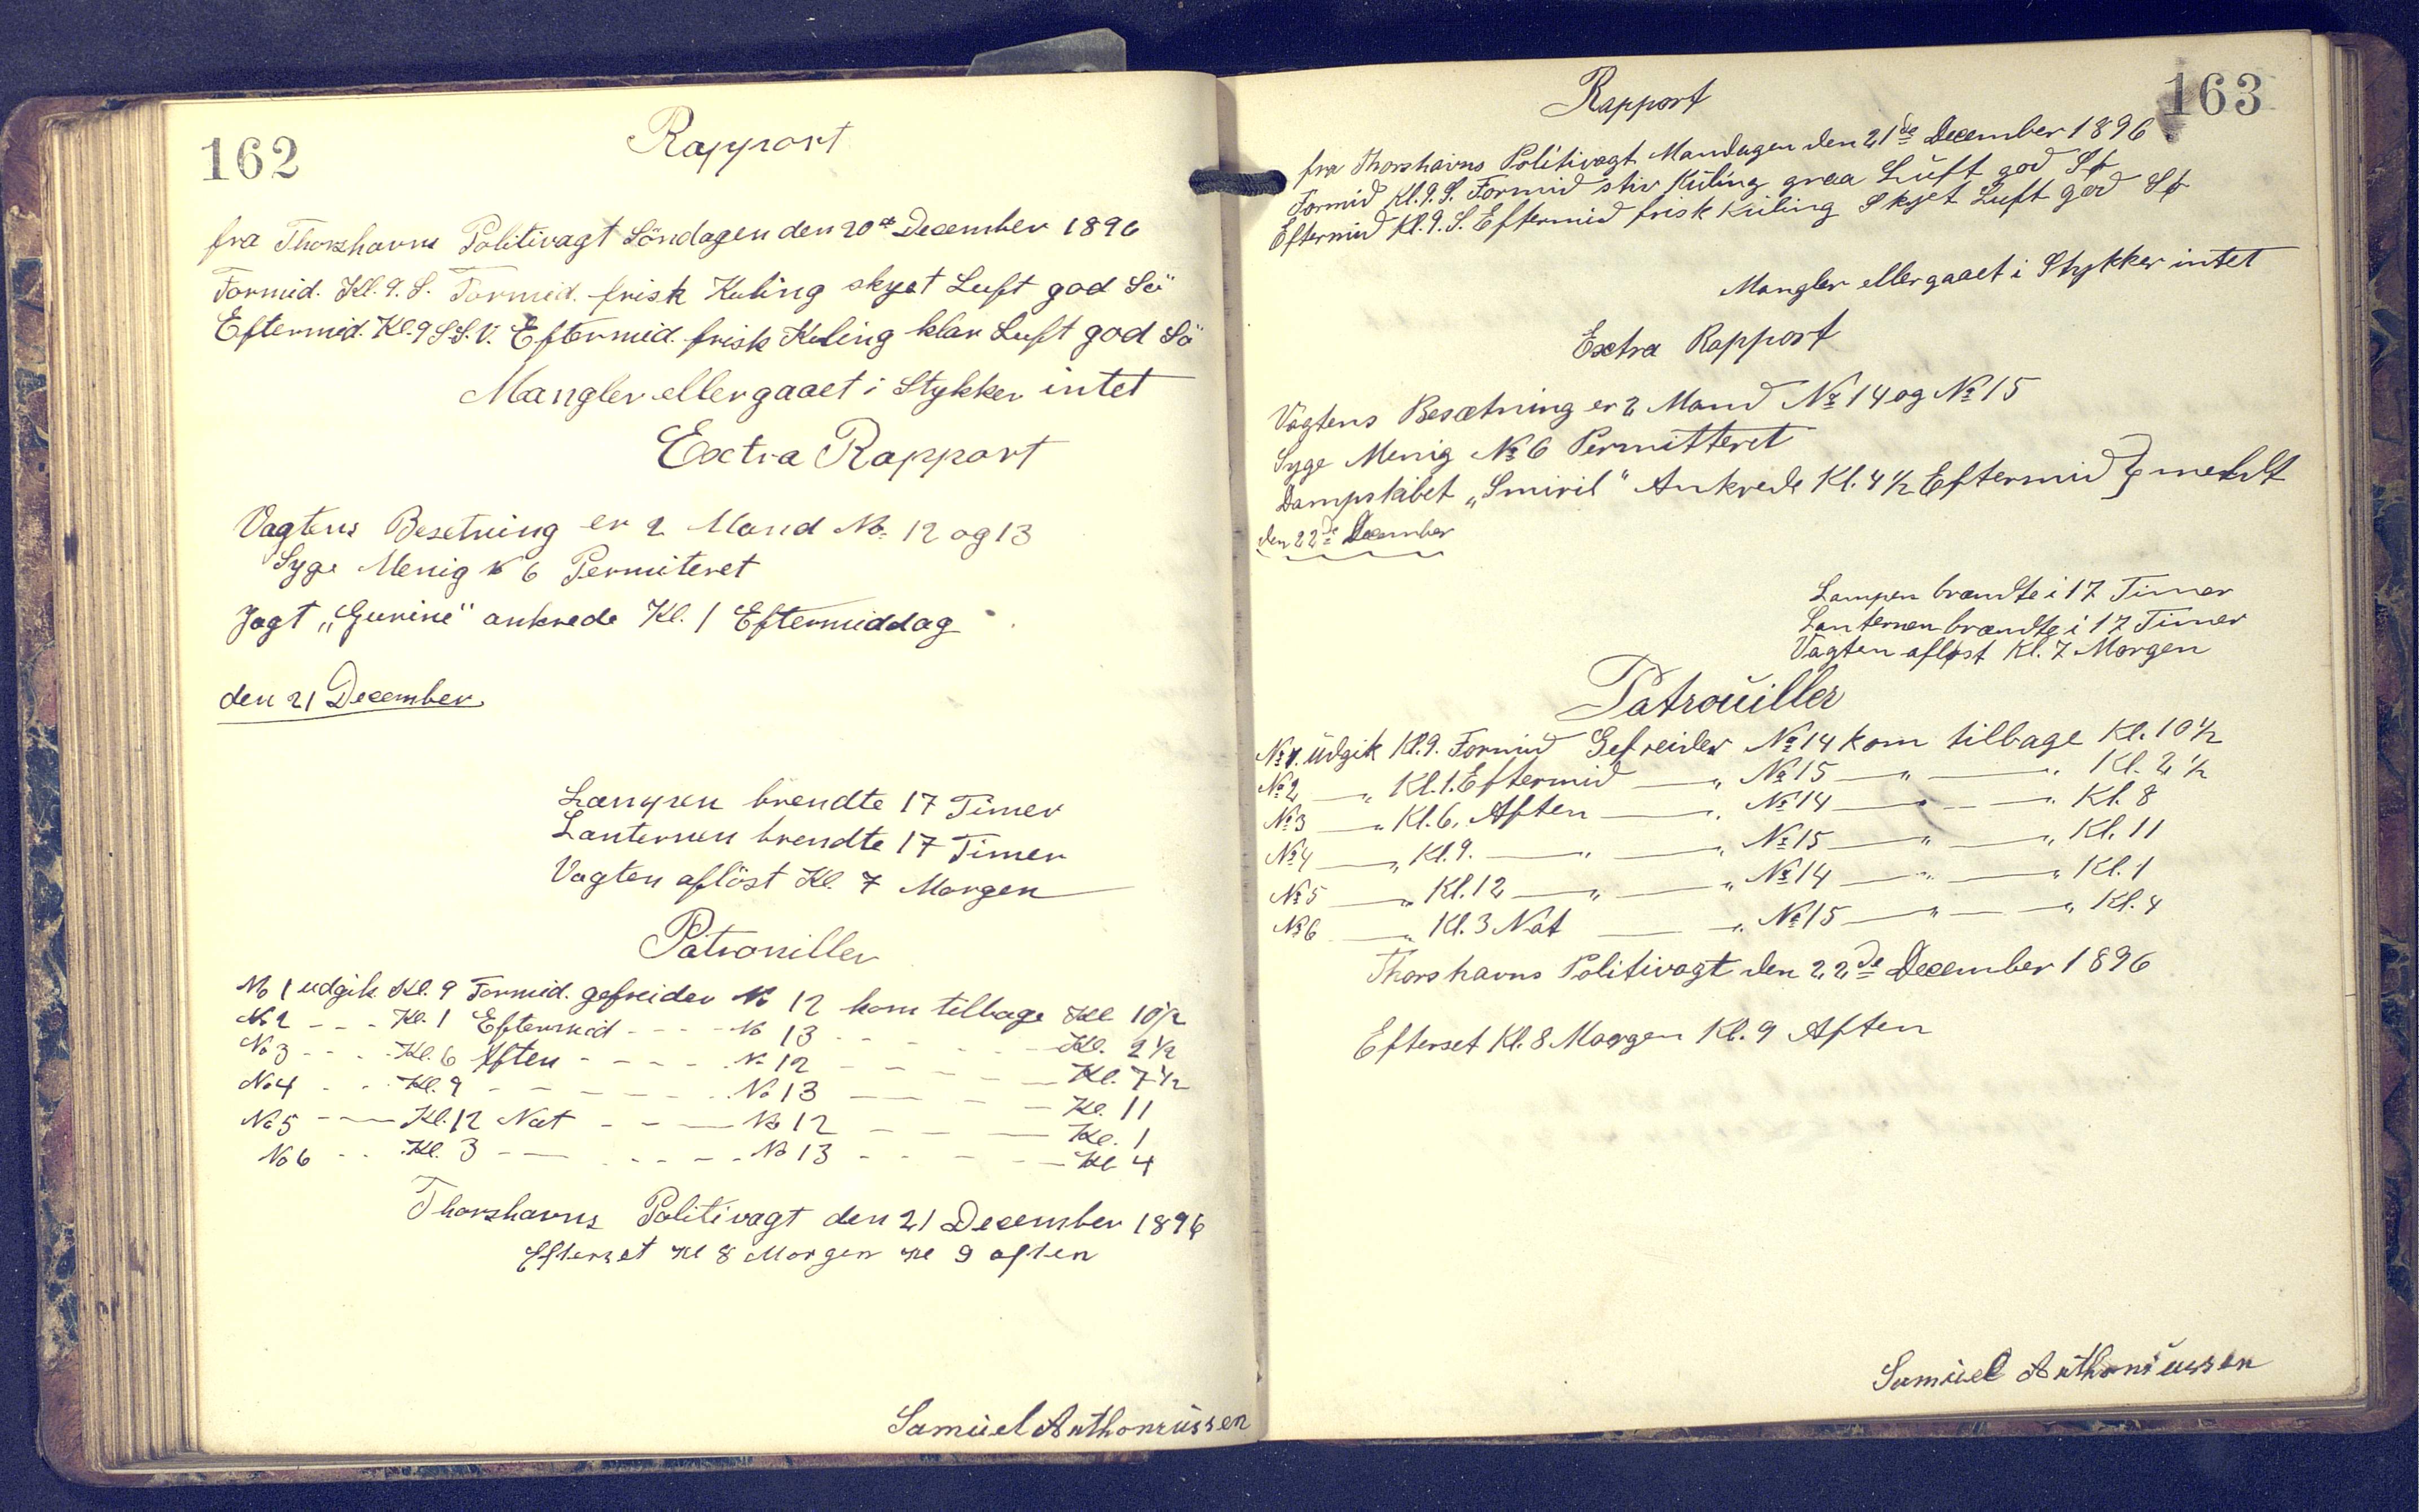 162
Rapport
fra Thorshavns Politivagt Söndagen den 20de December 1896
Formid. Kl. 9. S. Formid. frisk Kuling skyet Luft god Sö
Eftermid. Kl. 9 S.S.V. Eftermid. frisk Kuling klar Luft god Sö
Mangler eller gaaet i Stykker intet
Extra Rapport
Vagtens Besetning er 2 Mand No. 12 og 13
Syge Menig No 6 Permiteret
Jagt „Gurine“ ankrede Kl. 1 Eftermiddag
den 21 December
Lampen brendte 17 Timer
Lanternen brendte 17 Timer
Vagten aflöst Kl. 7 Morgen
Patrouiller
No 1 udgik Kl. 9 Formid. gefreider No 12 kom tilbage Kl 10½
No 2 - - - Kl. 1 Eftermid - - - - No 13 - - - - - Kl. 2½
No 3 - - - Kl. 6 Aften - - - - No 12 - - - - Kl. 7½
No 4 - - Kl. 9 - - - - - - No 13 - - - - Kl. 11
No 5 - - Kl. 12 Nat - - - No 12 - - - - Kl. 1
No 6 - - Kl. 3 - - - - - No 13 - - - - - Kl 4
Thorshavns Politivagt den 21 December 1896
Efterset Kl 8 Morgen Kl 9 aften
Samuel Anthoniussen
163
Rapport
fra Thorshavns Politivagt Mandagen den 21de December 1896
Formid Kl. 9. S. Formid stiv Kuling graa Luft god Sø
Eftermid Kl. 9. S. Eftermid frisk Kuling Skyet Luft god Sø
Mangler eller gaaet i Stykker intet
Extra Rapport
Vagtens Besætning er 2 Mand No 14 og No 15
Syge Menig No 6 Permitteret
Dampskibet „Smiril“ Ankrede Kl. 4½ Eftermid } meldt
den 22de December
Lampen brændte i 17 Timer
Lanternen brændte i 17 Timer
Vagten afløst Kl. 7 Morgen
Patrouiller
No 1. Udgik Kl. 9. Formid Gefreider No 14 kom tilbage Kl. 10½
No 2 — „ Kl. 1. Eftermid — „ No 15 — „ — „ Kl. 2½
No 3 — „ Kl. 6. Aften — „ No 14 — „ — „ Kl. 8
No 4 — „ Kl. 9. — „ — „ No 15 — „ — „ Kl. 11
No 5 — „ Kl. 12 — „ — „ No 14 — „ — „ Kl. 1
No 6 — „ Kl. 3 Nat — „ No 15 — „ — „ Kl. 4
Thorshavns Politivagt den 22de December 1896
Efterset Kl. 8 Morgen Kl. 9 Aften
Samuel Anthoniussen